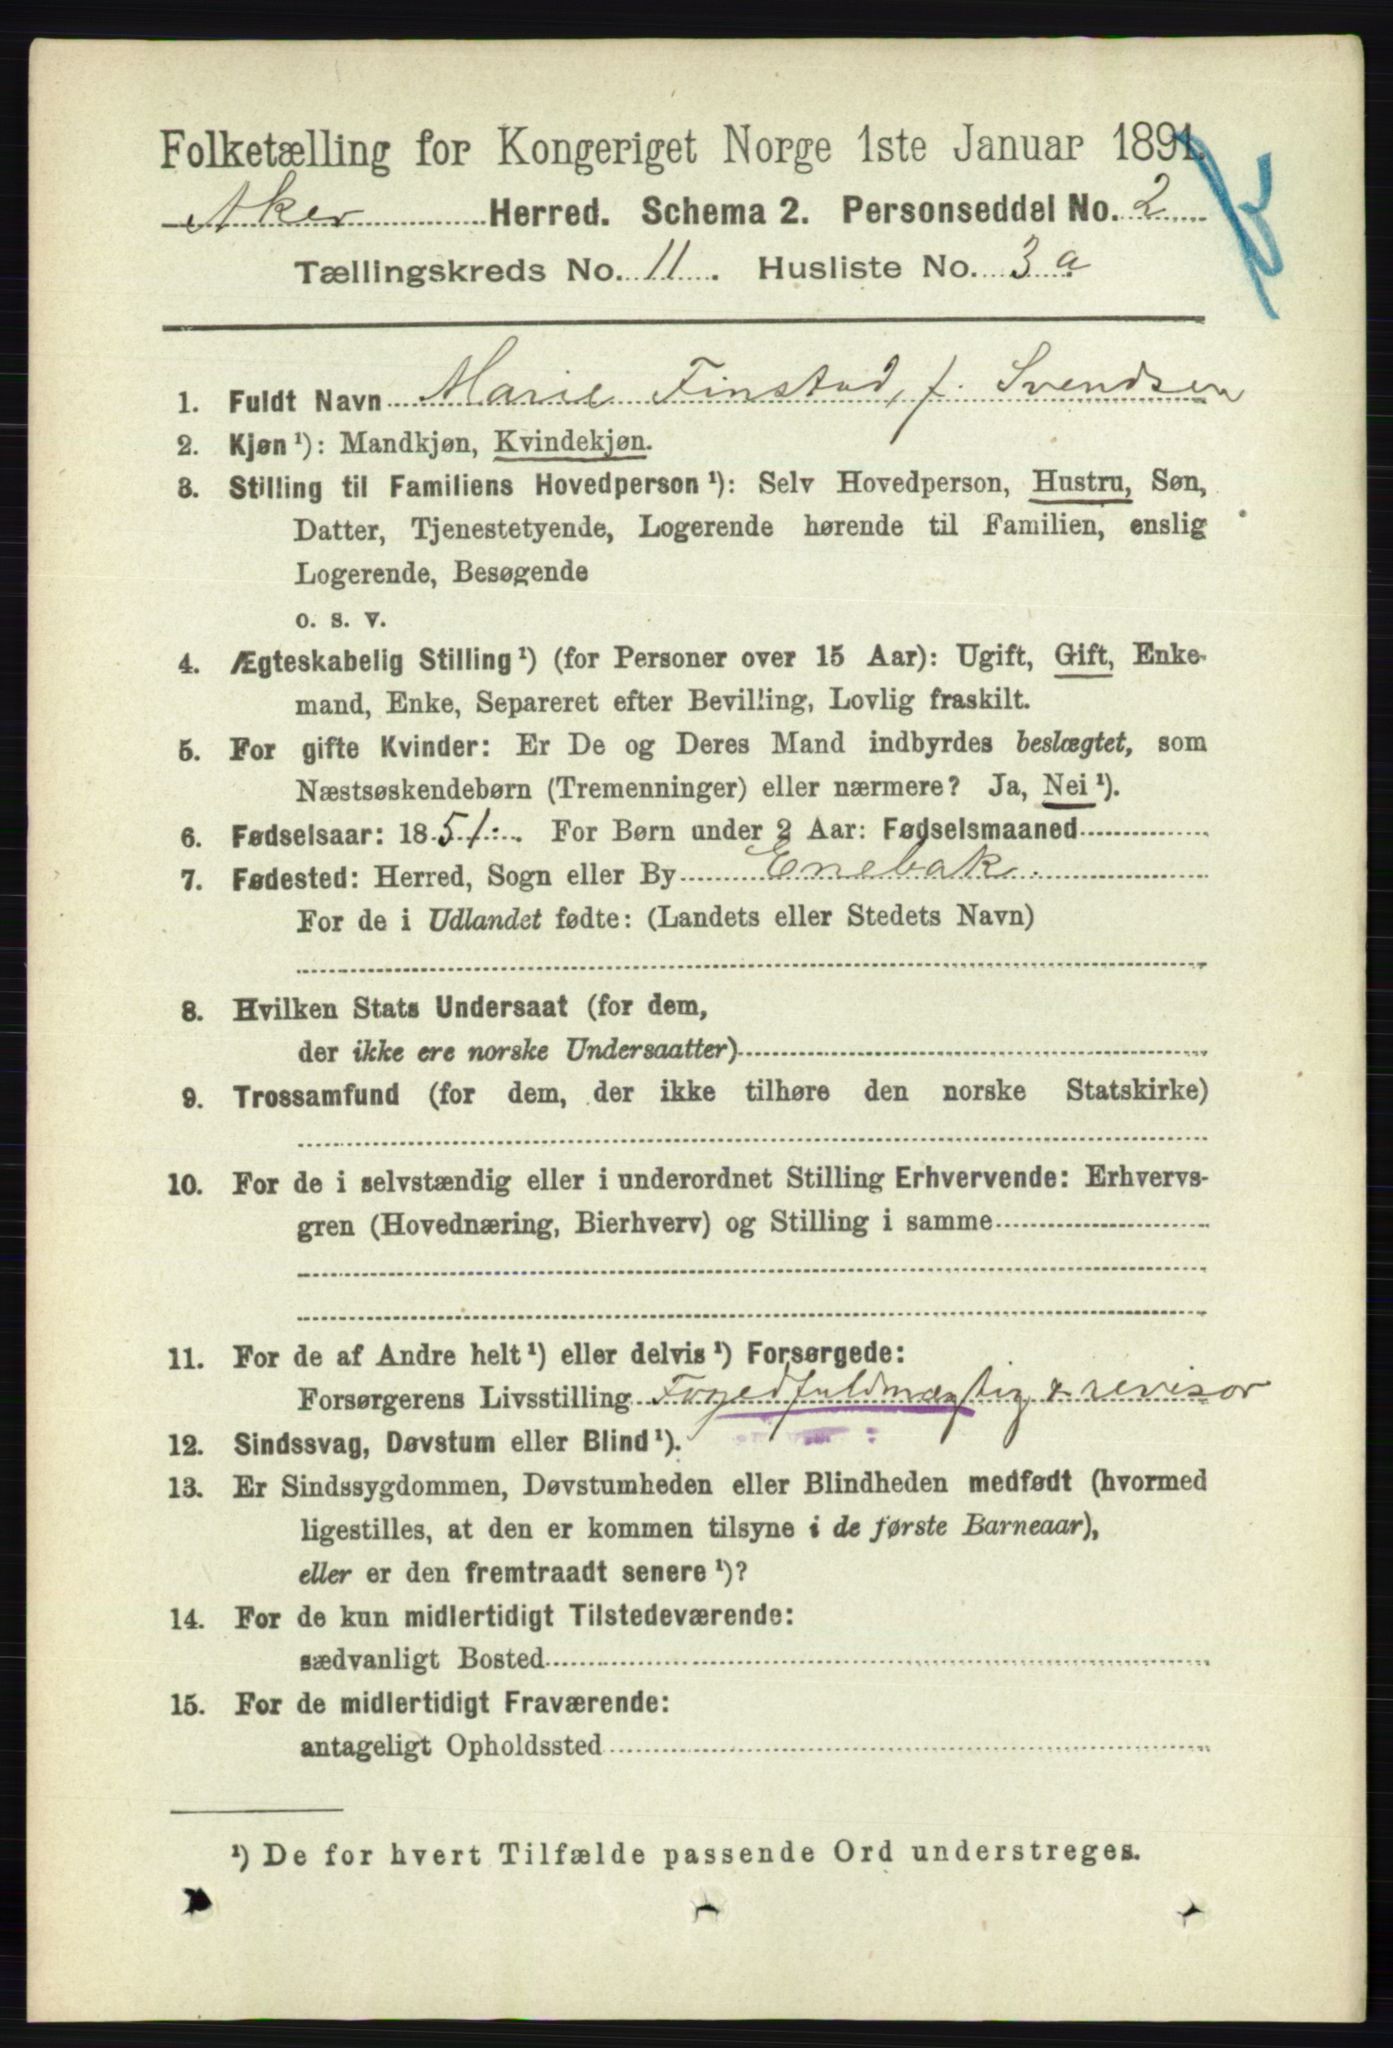 Folketælling for Kongeriget Norge 1ste Januar 1891.
Aker Herred. Schema 2. Personseddel No. 2
Tællingskreds No. 11. Husliste No. 3 a
1. Fuldt Navn Marie Finstad, f. Svendsen
2. Kjøn ¹): Mandkjøn, Kvindekjøn.
3. Stilling til Familiens Hovedperson ¹): Selv Hovedperson, Hustru, Søn,
Datter, Tjenestetyende, Logerende hørende til Familien, enslig
Logerende, Besøgende
o. s. v.
4. Ægteskabelig Stilling ¹) (for Personer over 15 Aar): Ugift, Gift, Enke-
mand, Enke, Separeret efter Bevilling, Lovlig fraskilt.
5. For gifte Kvinder: Er De og Deres Mand indbyrdes beslægtet, som
Næstsøskendebørn (Tremenninger) eller nærmere? Ja, Nei ¹).
6. Fødselsaar: 1851. For Børn under 2 Aar: Fødselsmaaned
7. Fødested: Herred, Sogn eller By Enebak.
For de i Udlandet fødte: (Landets eller Stedets Navn)
8. Hvilken Stats Undersaat (for dem,
der ikke ere norske Undersaatter)
9. Trossamfund (for dem, der ikke tilhøre den norske Statskirke)
10. For de i selvstændig eller i underordnet Stilling Erhvervende: Erhvervs-
gren (Hovednæring, Bierhverv) og Stilling i samme
11. For de af Andre helt ¹) eller delvis ¹) Forsørgede:
Forsørgerens Livsstilling Fogedfuldmægtig & revisor
12. Sindssvag, Døvstum eller Blind ¹).
13. Er Sindssygdommen, Døvstumheden eller Blindheden medfødt (hvormed
ligestilles, at den er kommen tilsyne i de første Barneaar),
eller er den fremtraadt senere ¹)?
14. For de kun midlertidigt Tilstedeværende:
sædvanligt Bosted
15. For de midlertidigt Fraværende:
antageligt Opholdssted
¹) De for hvert Tilfælde passende Ord understreges.